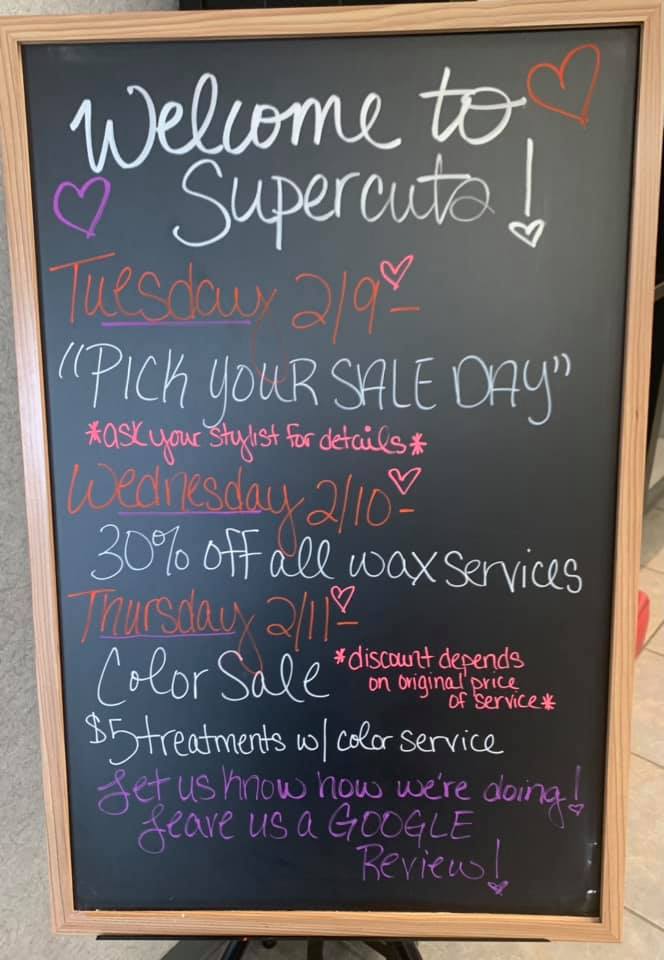 Welcome to
Supercuts!
Tuesday 2/9-
"PICK YOUR SALE DAY"
*ask your stylist for details*
Wednesday 2/10-
30% off all wax services
Thursday 2/11-
Color Sale *discount depends
on original price
of service*
$5 treatments w/ color service
Let us know how we're doing!
Leave us a GOOGLE
Review!